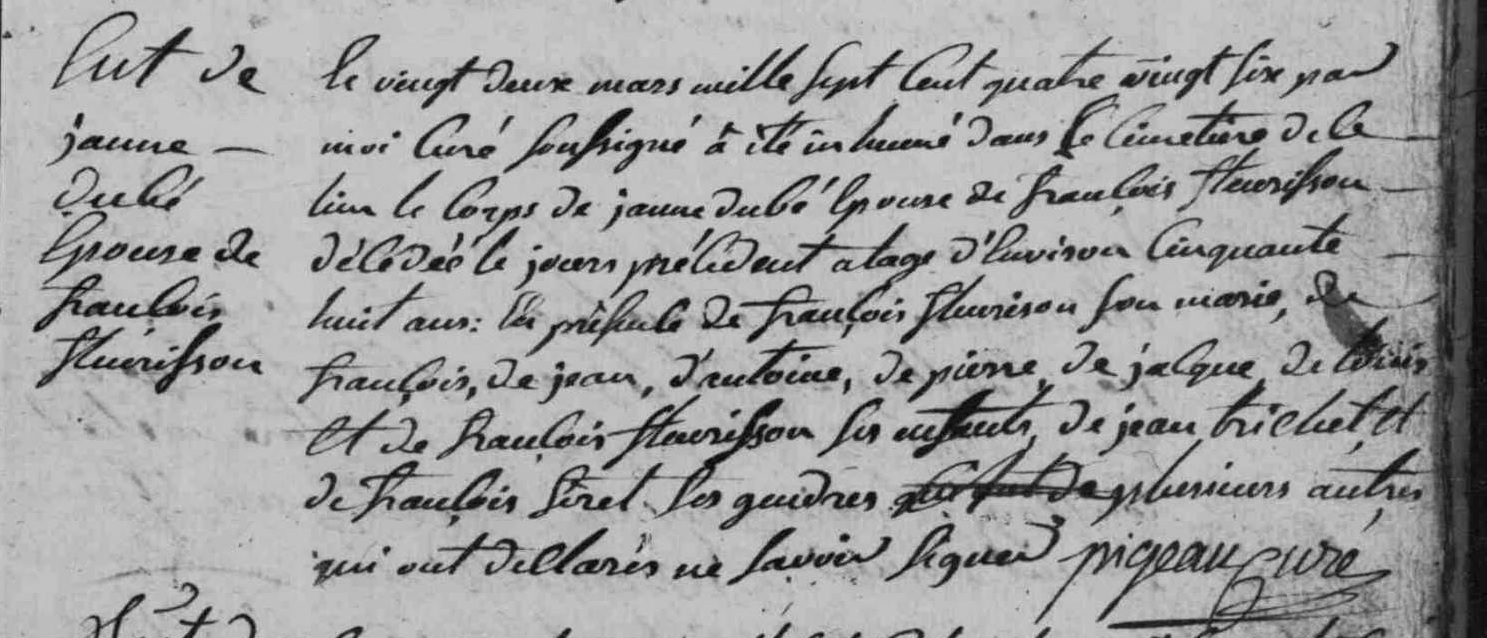 Ent de
jeanne —
dubé
Epouse de
françois
fleurisson
le vingt deux mars mille sept cent quatre vingt six par
moi Curé soussigné à été inhumé dans le Cimetière de ce —
lieu le Corps de jeanne dubé Epouse de françois fleurisson —
décédée le jours précédent a lage d'environ Cinquante —
huit ans: En présence de françois fleurison son marie, de
françois, de jean, d'antoine, de pierre, de jacque, de louis
Et de françois fleurisson ses enfants, de jean trichet, Et
de françois Siret ses gendres plusieurs autres
qui ont declarés ne savoir signer pigeau curé